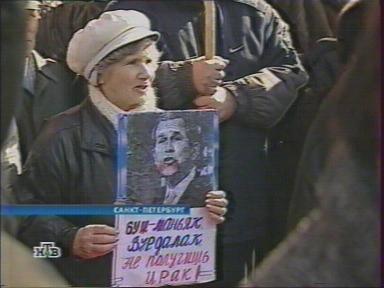 САНКТ-ПЕТЕРБУРГ
БУШ-МАНЬЯК
ВУРДАЛАК
НЕ ПОЛУЧИШЬ
ИРАК!
НТВ